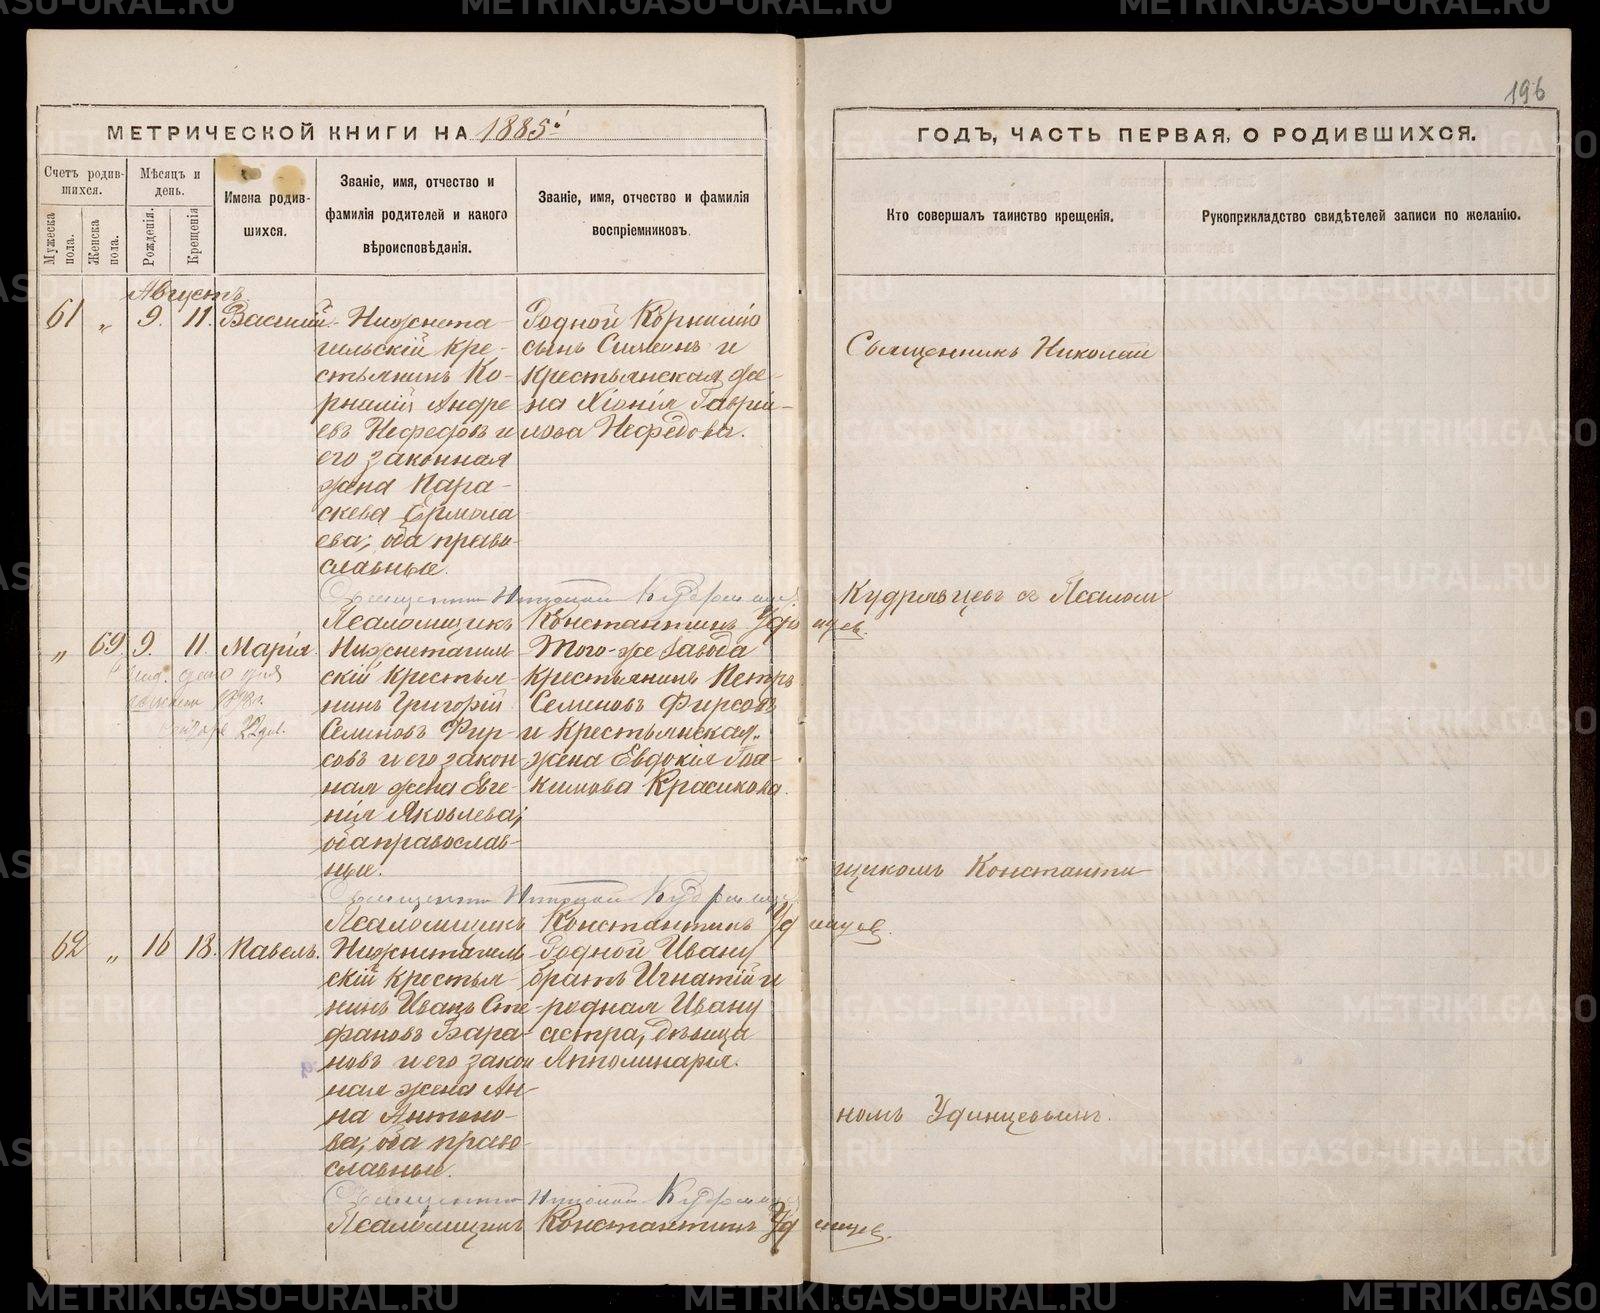 196
МЕТРИЧЕСКОЙ КНИГИ НА 1885.
ГОДЪ, ЧАСТЬ ПЕРВАЯ, О РОДИВШИХСЯ.
Счетъ родив-
шихся.
Мужеска пола.
Женска пола.
Мѣсяцъ и
день.
Рожденія.
Крещенія
Имена родив-
шихся.
Званіе, имя, отчество и
фамилія родителей и какого
вѣроисповѣданія.
Званіе, имя, отчество и фамилія
воспріемниковъ.
Кто совершалъ таинство крещенія.
Рукоприкладство свидѣтелей записи по желанію.
Августъ.
61 " 9. 11. Василій.
Нижнета-
гильскій кре-
стьянинъ Ко-
рнилій Андре
евъ Нефедовъ и
его законная
жена Пара-
скева Ермола
ева; оба право-
славные.
Родной Корнилію
сынъ Симеонъ и
крестьянская же-
на Хіонія Гаврі-
лова Нефедова.
Священникъ Николай Кудрявцевъ
Псаломщикъ Константинъ Удинцев.
" 69. 9. 11. Марія.
22
Нижнетагиль
скій крестья-
нинъ Григорій
Семеновъ Фир-
совъ и его закон-
ная жена Евге-
нія Яковлева;
оба православ-
ные.
Того-же завода
крестьянинъ Петръ
Семеновъ Фирсовъ
и крестьянская
жена Евдокія Іоа-
кимова Красикова.
Священникъ Николай Кудрявцевъ
Псаломщикъ Константинъ Удинцев.
62 " 16 18. Павелъ.
Нижнетагиль
скій крестья-
нинъ Иванъ Сте-
фановъ Бара-
новъ и его закон
ная жена Ан-
на Антоно-
ва; оба право-
славные.
Родной Ивану
братъ Игнатій и
родная Ивану
сестра, дѣвица
Апполинарія.
Священникъ Николай Кудрявцевъ
Псаломщикъ Константинъ Удинцев.
Священникъ Николай
Кудрявцевъ съ Псалом
щикомъ Константи
номъ Удинцевымъ.
METRIKI.GASO-URAL.RU